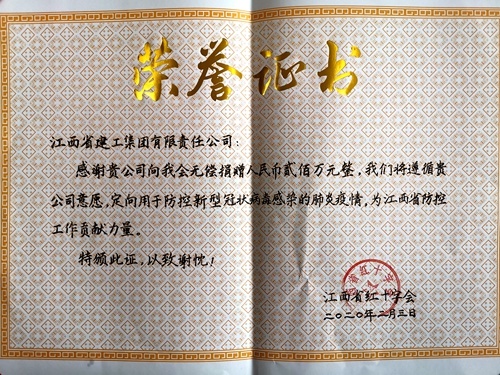 荣誉证书
江西省建工集团有限责任公司：
感谢贵公司向我会无偿捐赠人民币贰佰万元整，我们将遵循贵
公司意愿，定向用于防控新型冠状病毒感染的肺炎疫情，为江西省防控
工作贡献力量。
特颁此证，以致谢忱！
江西省红十字会
二〇二〇年二月三日